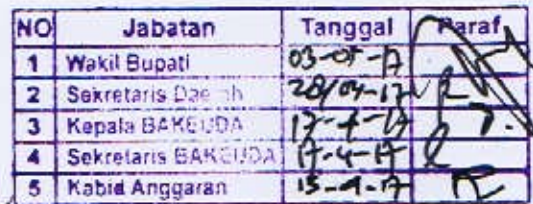 NO Jabatan Tanggal Paraf
1 Wakil Bupati 03-05-17
2 Sekretaris Daerah 28/04-17
3 Kepala BAKEUDA 17-4-17
4 Sekretaris BAKEUDA 17-4-17
5 Kabid Anggaran 15-4-17